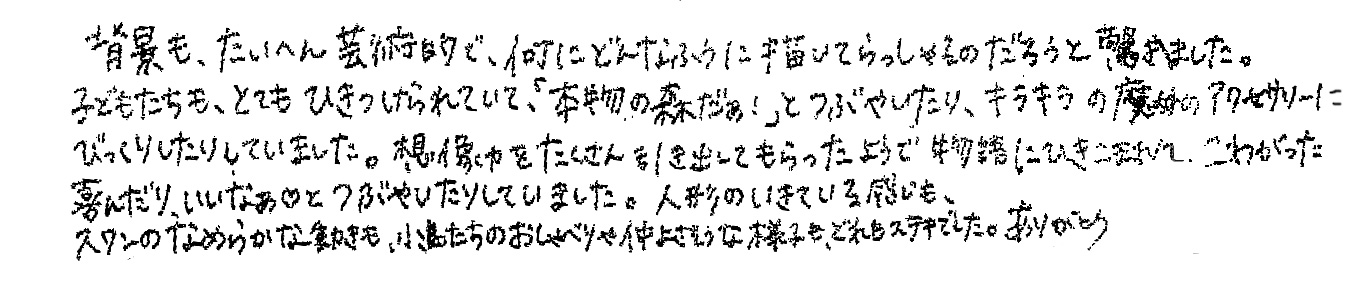 背景も、たいへん芸術的で、何にどんなふうに描いてらっしゃるのだろうと驚きました。
子どもたちも、とてもひきつけられていて、「本物の森だぁ!」とつぶやいたり、キラキラの魔女のアクセサリーに
びっくりしたりしていました。想像力をたくさん引き出してもらったようで物語にひきこまれて、こわがった
喜んだり、いいなぁ♡とつぶやいたりしていました。人形のいきている感じも、
スワンのなめらかな動きも、小鳥たちのおしゃべりや仲よさそうな様子も、どれもステキでした。ありがとう